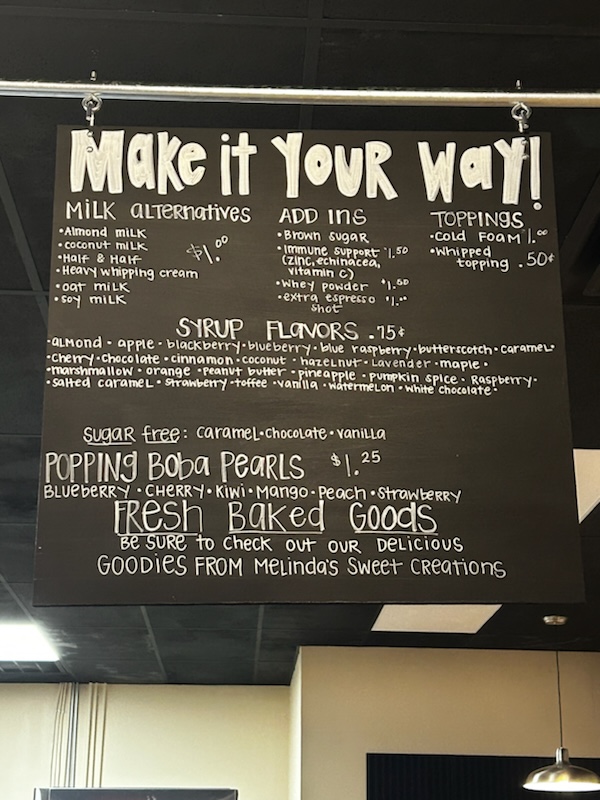 Make it Your Way!
MILK ALTERNATIVES
• Almond milk
• coconut milk
• Half & Half
• Heavy whipping cream
• oat milk
• soy milk
$1.00
ADD INS
• Brown sugar
• Immune support $1.50
(zinc, echinacea,
vitamin C)
• Whey powder $1.50
• extra espresso $1.00
shot
TOPPINGS
• Cold Foam 1.00
• Whipped
topping .50¢
SYRUP FLAVORS .75¢
• almond • apple • blackberry • blueberry • blue raspberry • butterscotch • caramel •
• cherry • chocolate • cinnamon • coconut • hazelnut • lavender • maple •
• marshmallow • orange • peanut butter • pineapple • pumpkin spice • Raspberry •
• salted caramel • strawberry • toffee • vanilla • watermelon • white chocolate •
sugar free: caramel • chocolate • vanilla
POPPING Boba Pearls $1.25
BLUEBERRY • CHERRY • Kiwi • Mango • Peach • Strawberry
FRESH Baked Goods
Be sure to check out our delicious
GOODIES FROM Melinda's Sweet Creations